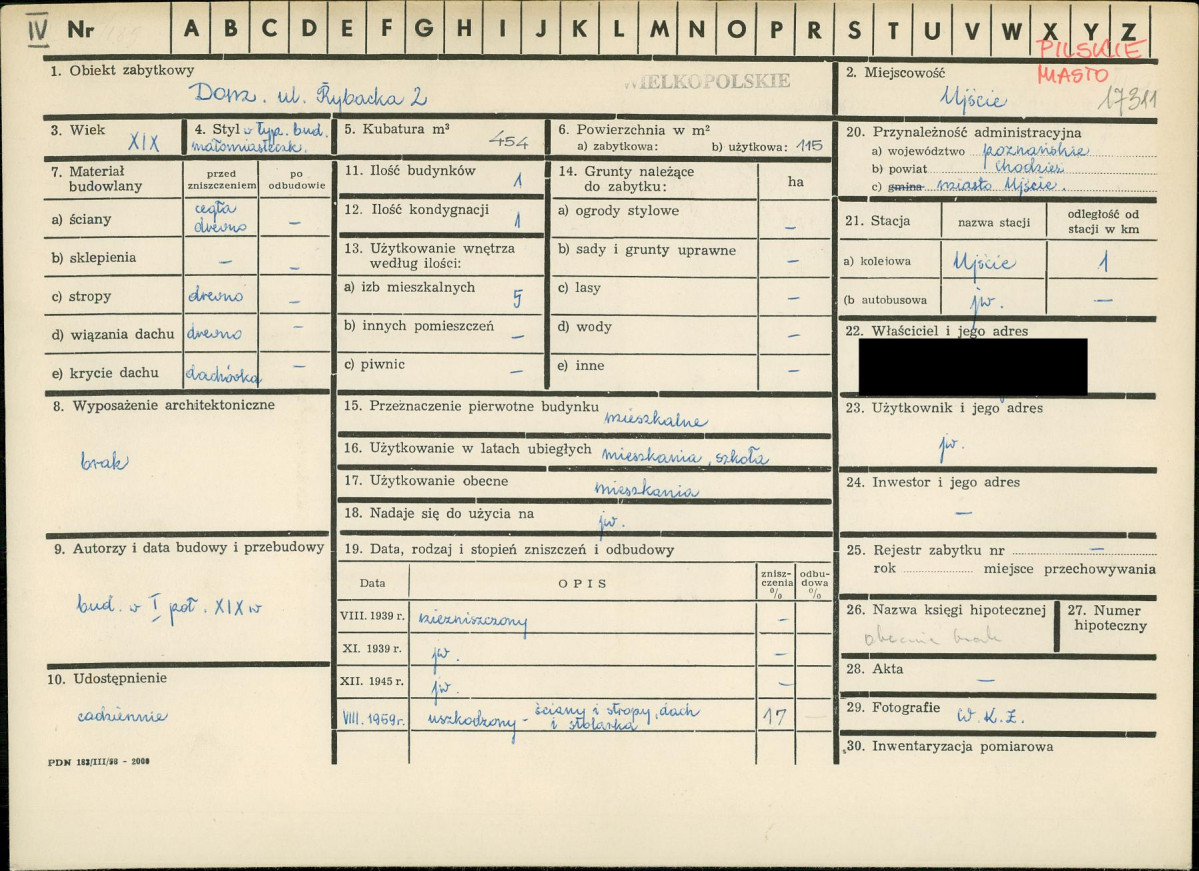 IV Nr A B C D E F G H I J K L M N O P R S T U V W X Y Z
PILSKIE
MIASTO
1. Obiekt zabytkowy
Dom. ul. Rybacka 2
WIELKOPOLSKIE
2. Miejscowość
Ujście 17311
3. Wiek
XIX
4. Styl w typ. bud.
małomiasteczk.
5. Kubatura m³
454
6. Powierzchnia w m²
a) zabytkowa: b) użytkowa: 115
7. Materiał budowlany
przed zniszczeniem
po odbudowie
a) ściany cegła drewno –
b) sklepienia – –
c) stropy drewno –
d) wiązania dachu drewno –
e) krycie dachu dachówka –
8. Wyposażenie architektoniczne
brak
9. Autorzy i data budowy i przebudowy
bud. w I poł. XIX w
10. Udostępnienie
codziennie
PDN 183/III/58 - 2000
11. Ilość budynków
1
12. Ilość kondygnacji
1
13. Użytkowanie wnętrza
według ilości:
a) izb mieszkalnych 5
b) innych pomieszczeń –
c) piwnic –
14. Grunty należące
do zabytku: ha
a) ogrody stylowe –
b) sady i grunty uprawne –
c) lasy –
d) wody –
e) inne –
15. Przeznaczenie pierwotne budynku
mieszkalne
16. Użytkowanie w latach ubiegłych mieszkania, szkoła
17. Użytkowanie obecne
mieszkania
18. Nadaje się do użycia na
jw.
19. Data, rodzaj i stopień zniszczeń i odbudowy
Data OPIS znisz-czenia % odbu-dowa %
VIII. 1939 r. niezniszczony –
XI. 1939 r. jw. –
XII. 1945 r. jw. –
VIII. 1959 r. uszkodzony - ściany i stropy, dach i stolarka 17 –
20. Przynależność administracyjna
a) województwo poznańskie
b) powiat Chodzież
c) gmina miasto Ujście.
21. Stacja nazwa stacji odległość od stacji w km
a) kolejowa Ujście 1
(b autobusowa jw. –
22. Właściciel i jego adres
23. Użytkownik i jego adres
jw.
24. Inwestor i jego adres
–
25. Rejestr zabytku nr –
rok miejsce przechowywania
26. Nazwa księgi hipotecznej
obecnie brak
27. Numer
hipoteczny
28. Akta
–
29. Fotografie W.K.Z.
30. Inwentaryzacja pomiarowa